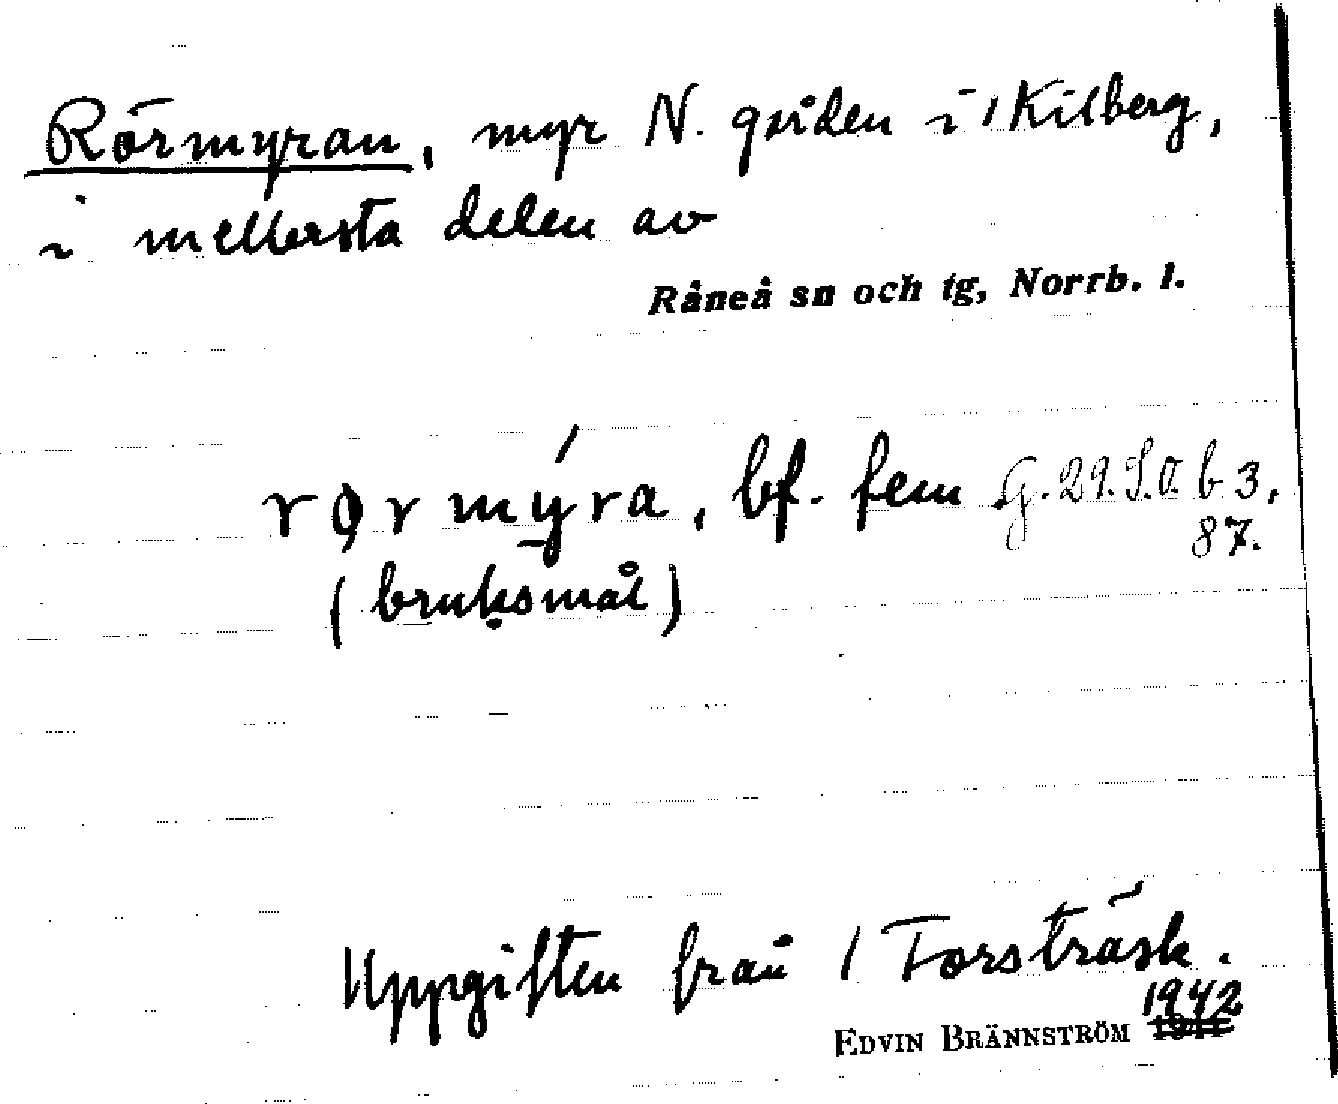 Rörmyran, myr N. gården i / Kilberg,
i mellersta delen av
Råneå sn och tg, Norrb. l.
rørmýra, bf. fem G. 29. S.O. b 3,
87.
(bruksmål)
Uppgiften från / Torsträsk.
1942
EDVIN BRÄNNSTRÖM 1941